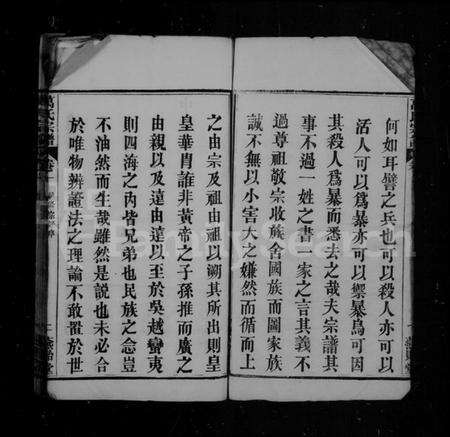 何如耳譬之兵也可以殺人亦可以
活人可以為暴亦可以禦暴烏可因
其殺人為暴而悉去之哉夫宗譜其
事不過一姓之書一家之言其義不
過尊祖敬宗收族舍國族而圖家族
誠不無以小害大之嫌然而循而上
之由宗及祖由祖以溯其所出則皇
皇華胄誰非黃帝之子孫推而廣之
由親以及遠由遠以至於吳越蠻夷
則四海之內皆兄弟也民族之念豈
不油然而生哉雖然是說也未必合
於唯物辨證法之理論不敢置於世
萬氏宗譜
FamilySearch